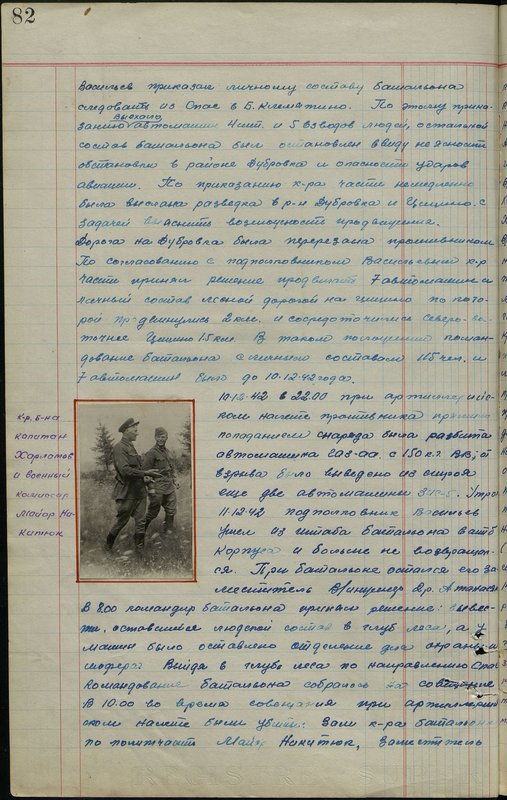 82
Васильев приказал личному составу батальона
следовать из Спас в Б. Клематино. По этому прика-
занию выехало автомашин 4 шт. и 5 взводов людей, остальной
состав батальона был остановлен ввиду неясности
обстановки в районе Дубровка и опасности ударов
авиации. По приказанию к-ра части немедленно
была выслана разведка в р-н Дубровка и Цицино с
задачей выяснить возможность продвижения.
Дорога на Дубровка была перерезана противником
По согласованию с подполковником Васильевым к-р
части принял решение продвигать 7 автомашин и
личный состав лесной дорогой на Цицино по кото-
рой продвинулись 2 клм. и сосредоточились северо-во-
точнее Цицино 1,5 клм. В таком положении коман-
дование батальона с личным составом 165 чел. и
7 автомашин было до 10-12-42 года.
10-12-42 в 22.00 при артиллерийс-
ком налете противника прямым
попаданием снаряда была разбита
автомашина с 150 кг. ВВ; от
взрыва было выведено из строя
еще две автомашины ЗИС-5. Утром
11-12-42 подполковник Васильев
ушел из штаба батальона в штаб
корпуса и больше не возвращал-
ся. При батальоне остался его за-
меститель
В 8.00 командир батальона принял решение: вывес-
ти оставшийся людской состав в глубь леса, а у
машин было оставлено отделение для охраны и
шофера. Выйдя в глубь леса по направлению
командование батальона собралось на совещание
В 10.00 во время совещания при артиллерий-
ском налете были убиты: Зам. к-ра батальона
по политчасти Майор Никитюк, заместитель
К-р. б-на
капитан
Харламов
и военный
комиссар
Майор Ни-
китюк